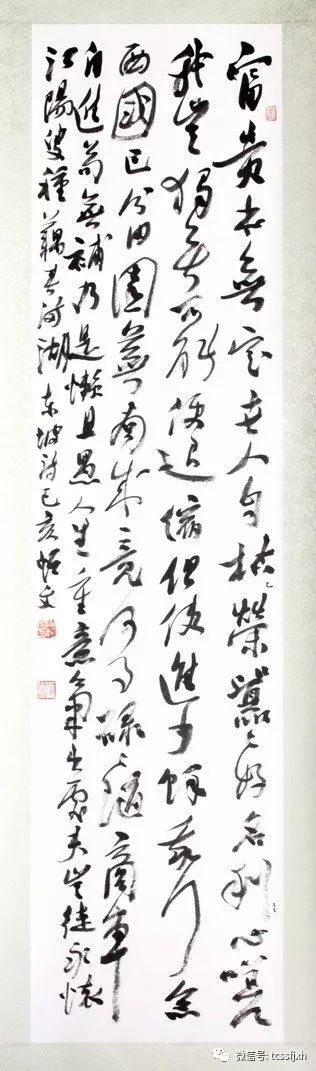 富貴本無定世人自枯榮囂囂好名利心嗟
我豈獨無不能便退縮但使進少徐我行念
西國已分田園蕪南來竟何事碌碌隨商車
自進苟無補乃是懶且愚人生重意氣出處夫豈徒永懷
江陽叟種藕春滿湖 東坡詩己亥
微信号: tcssfjxh